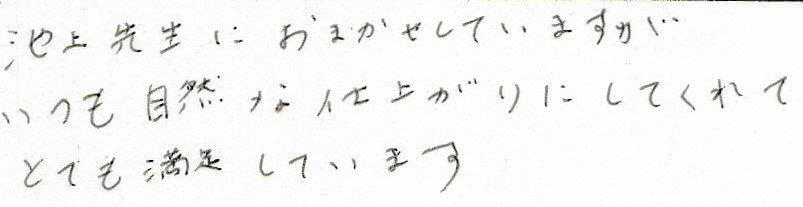 池上先生におまかせしていますが
いつも自然な仕上がりにしてくれて
とても満足しています